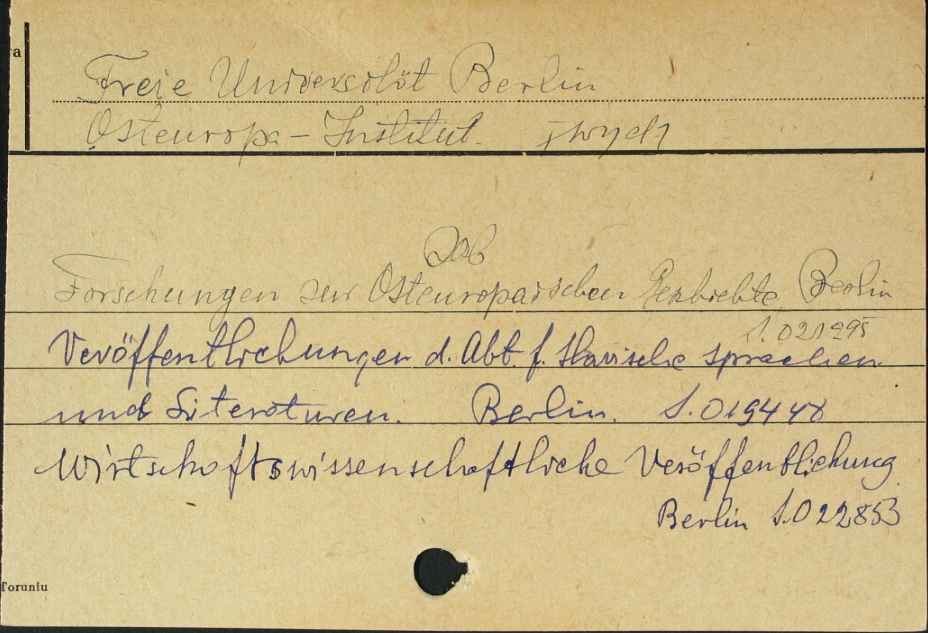 a
Freie Universität Berlin
Osteuropa-Institut.
Forschungen zur Osteuropäischen Geschichte Berlin
S.021295
Veröffentlichungen d. Abt. f. Slavische Sprachen
und Literaturen. Berlin. S.019448
Wirtschaftswissenschaftliche Veröffentlichung
Berlin S.022853
Toruniu